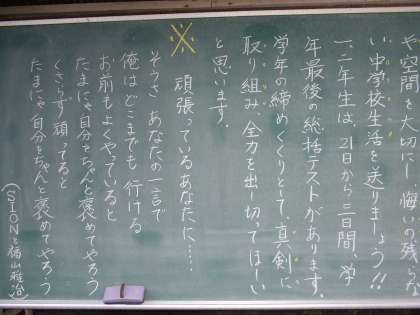 や空間を大切に!悔いの残らな
い中学校生活を送りましょう!!
一、二年生は、21日から三日間、学
年最後の総括テストがあります。
学年の締めくくりとして、真剣に
取り組み、全力を出し切ってほしい
と思います。
※
頑張っているあなたに……
そうさ あなたの一言で
俺はどこまでも 行ける
お前もよくやっていると
たまにゃ自分をちゃんと褒めてやろう
くさらず頑ってると
たまにゃ自分をちゃんと褒めてやろう
(SIONと福山雅治)